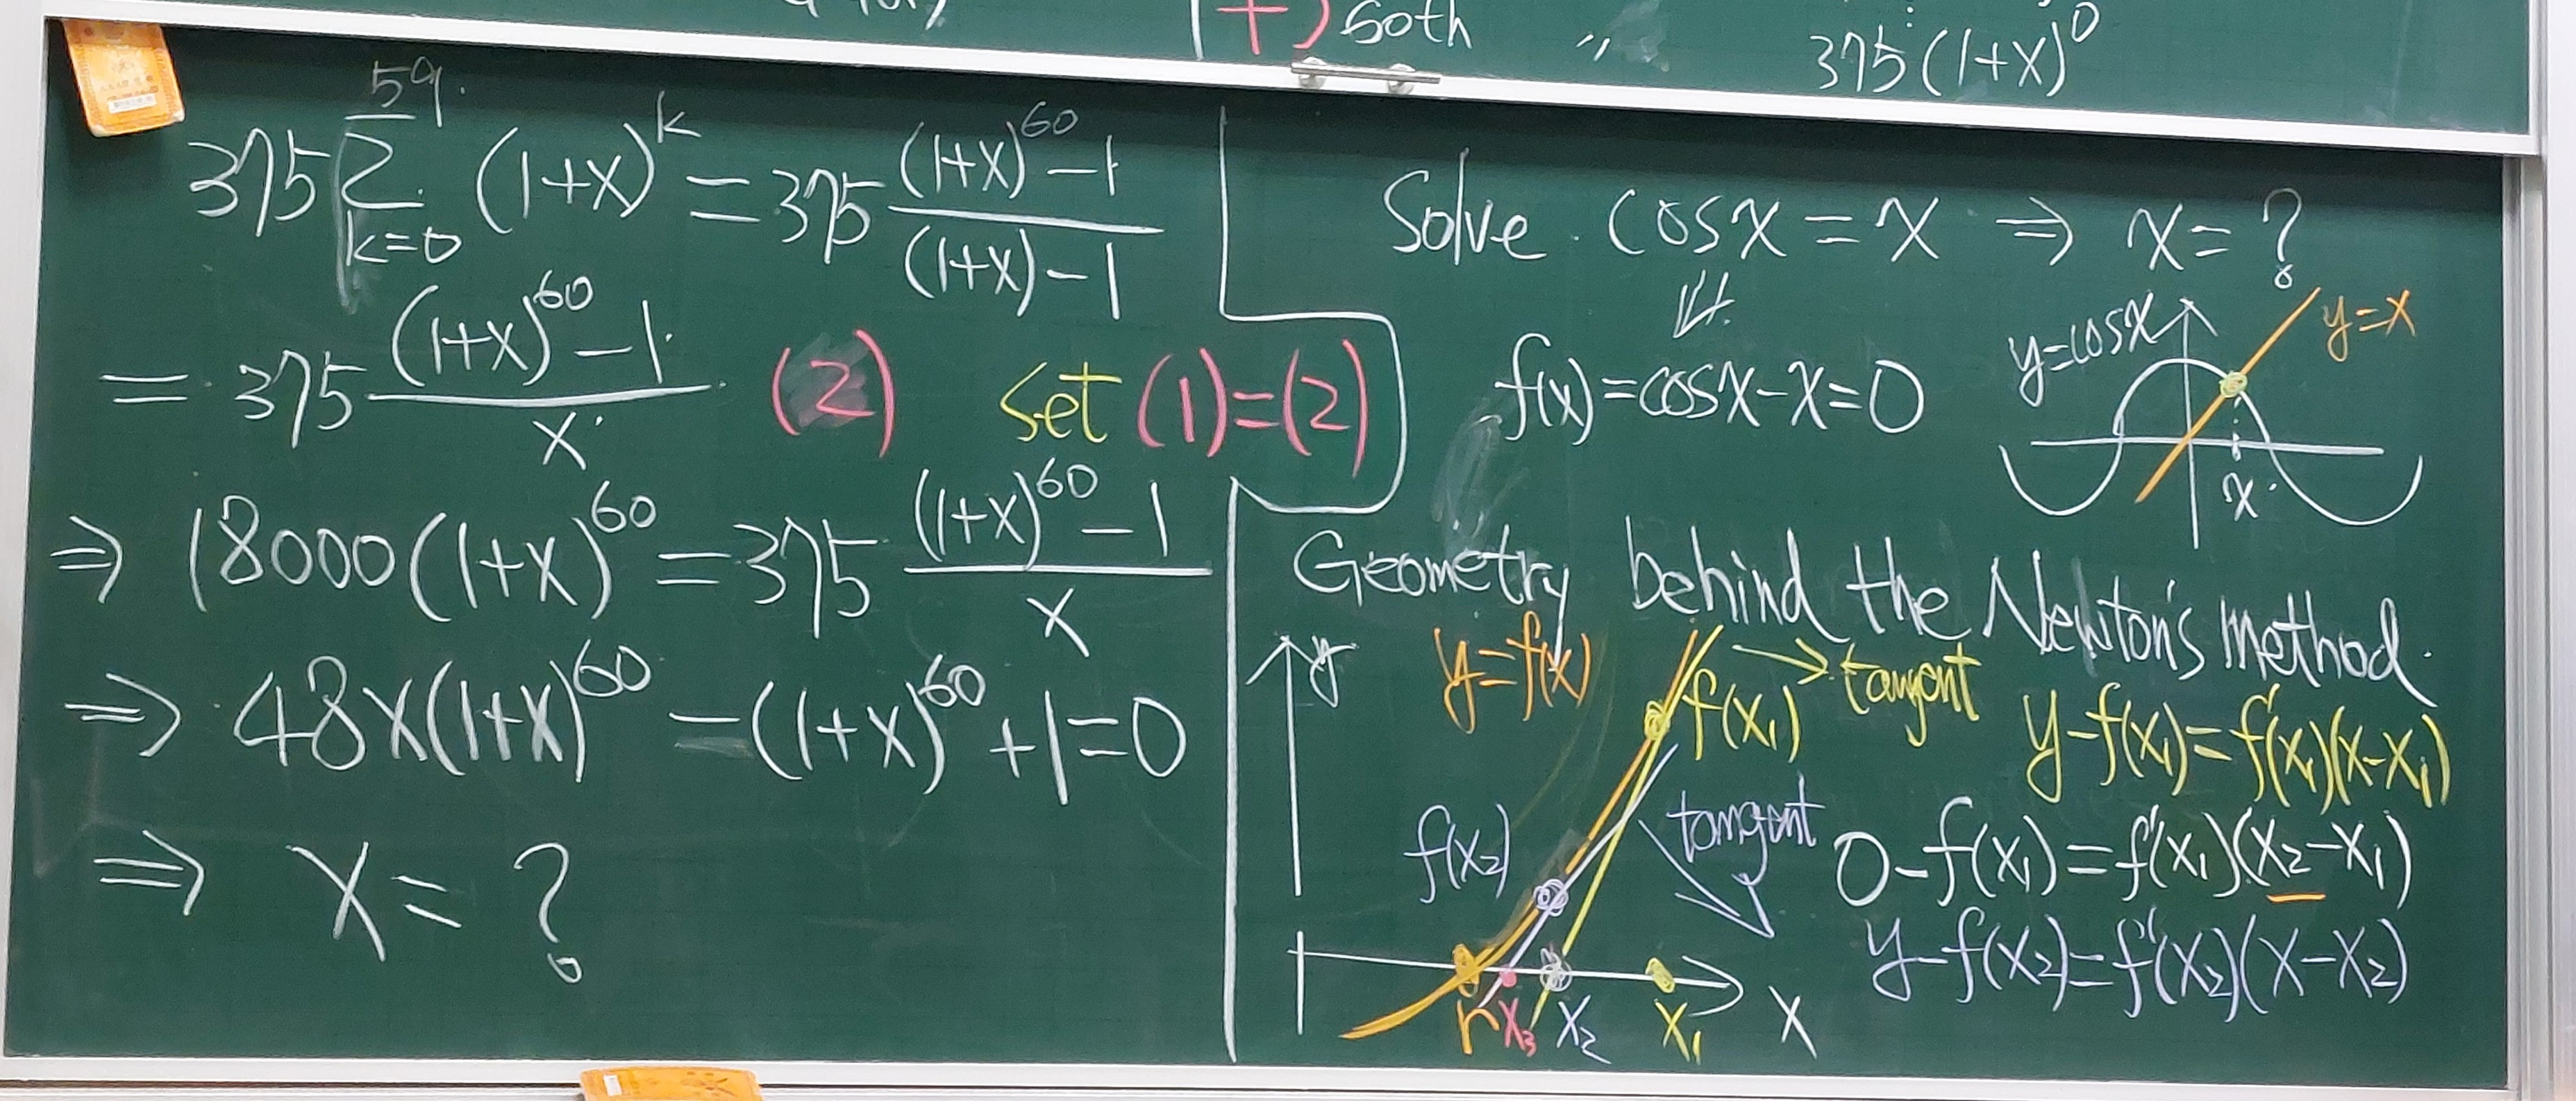 both "
375(1+x)^0
375 Σ_{k=0}^{59} (1+x)^k = 375 ((1+x)^60 - 1)/((1+x) - 1)
= 375 ((1+x)^60 - 1)/x (2) set (1)=(2)
⇒ 18000(1+x)^60 = 375 ((1+x)^60 - 1)/x
⇒ 48x(1+x)^60 - (1+x)^60 + 1 = 0
⇒ x = ?
Solve cosx = x ⇒ x = ?
⇓
f(x) = cosx - x = 0
y=cosx
y=x
x
Geometry behind the Newton's method.
y
y=f(x)
f(x₁) → tangent
y-f(x₁)=f'(x₁)(x-x₁)
f(x₂)
tangent
0-f(x₁)=f'(x₁)(x₂-x₁)
y-f(x₂)=f'(x₂)(x-x₂)
r x₃ x₂ x₁ x